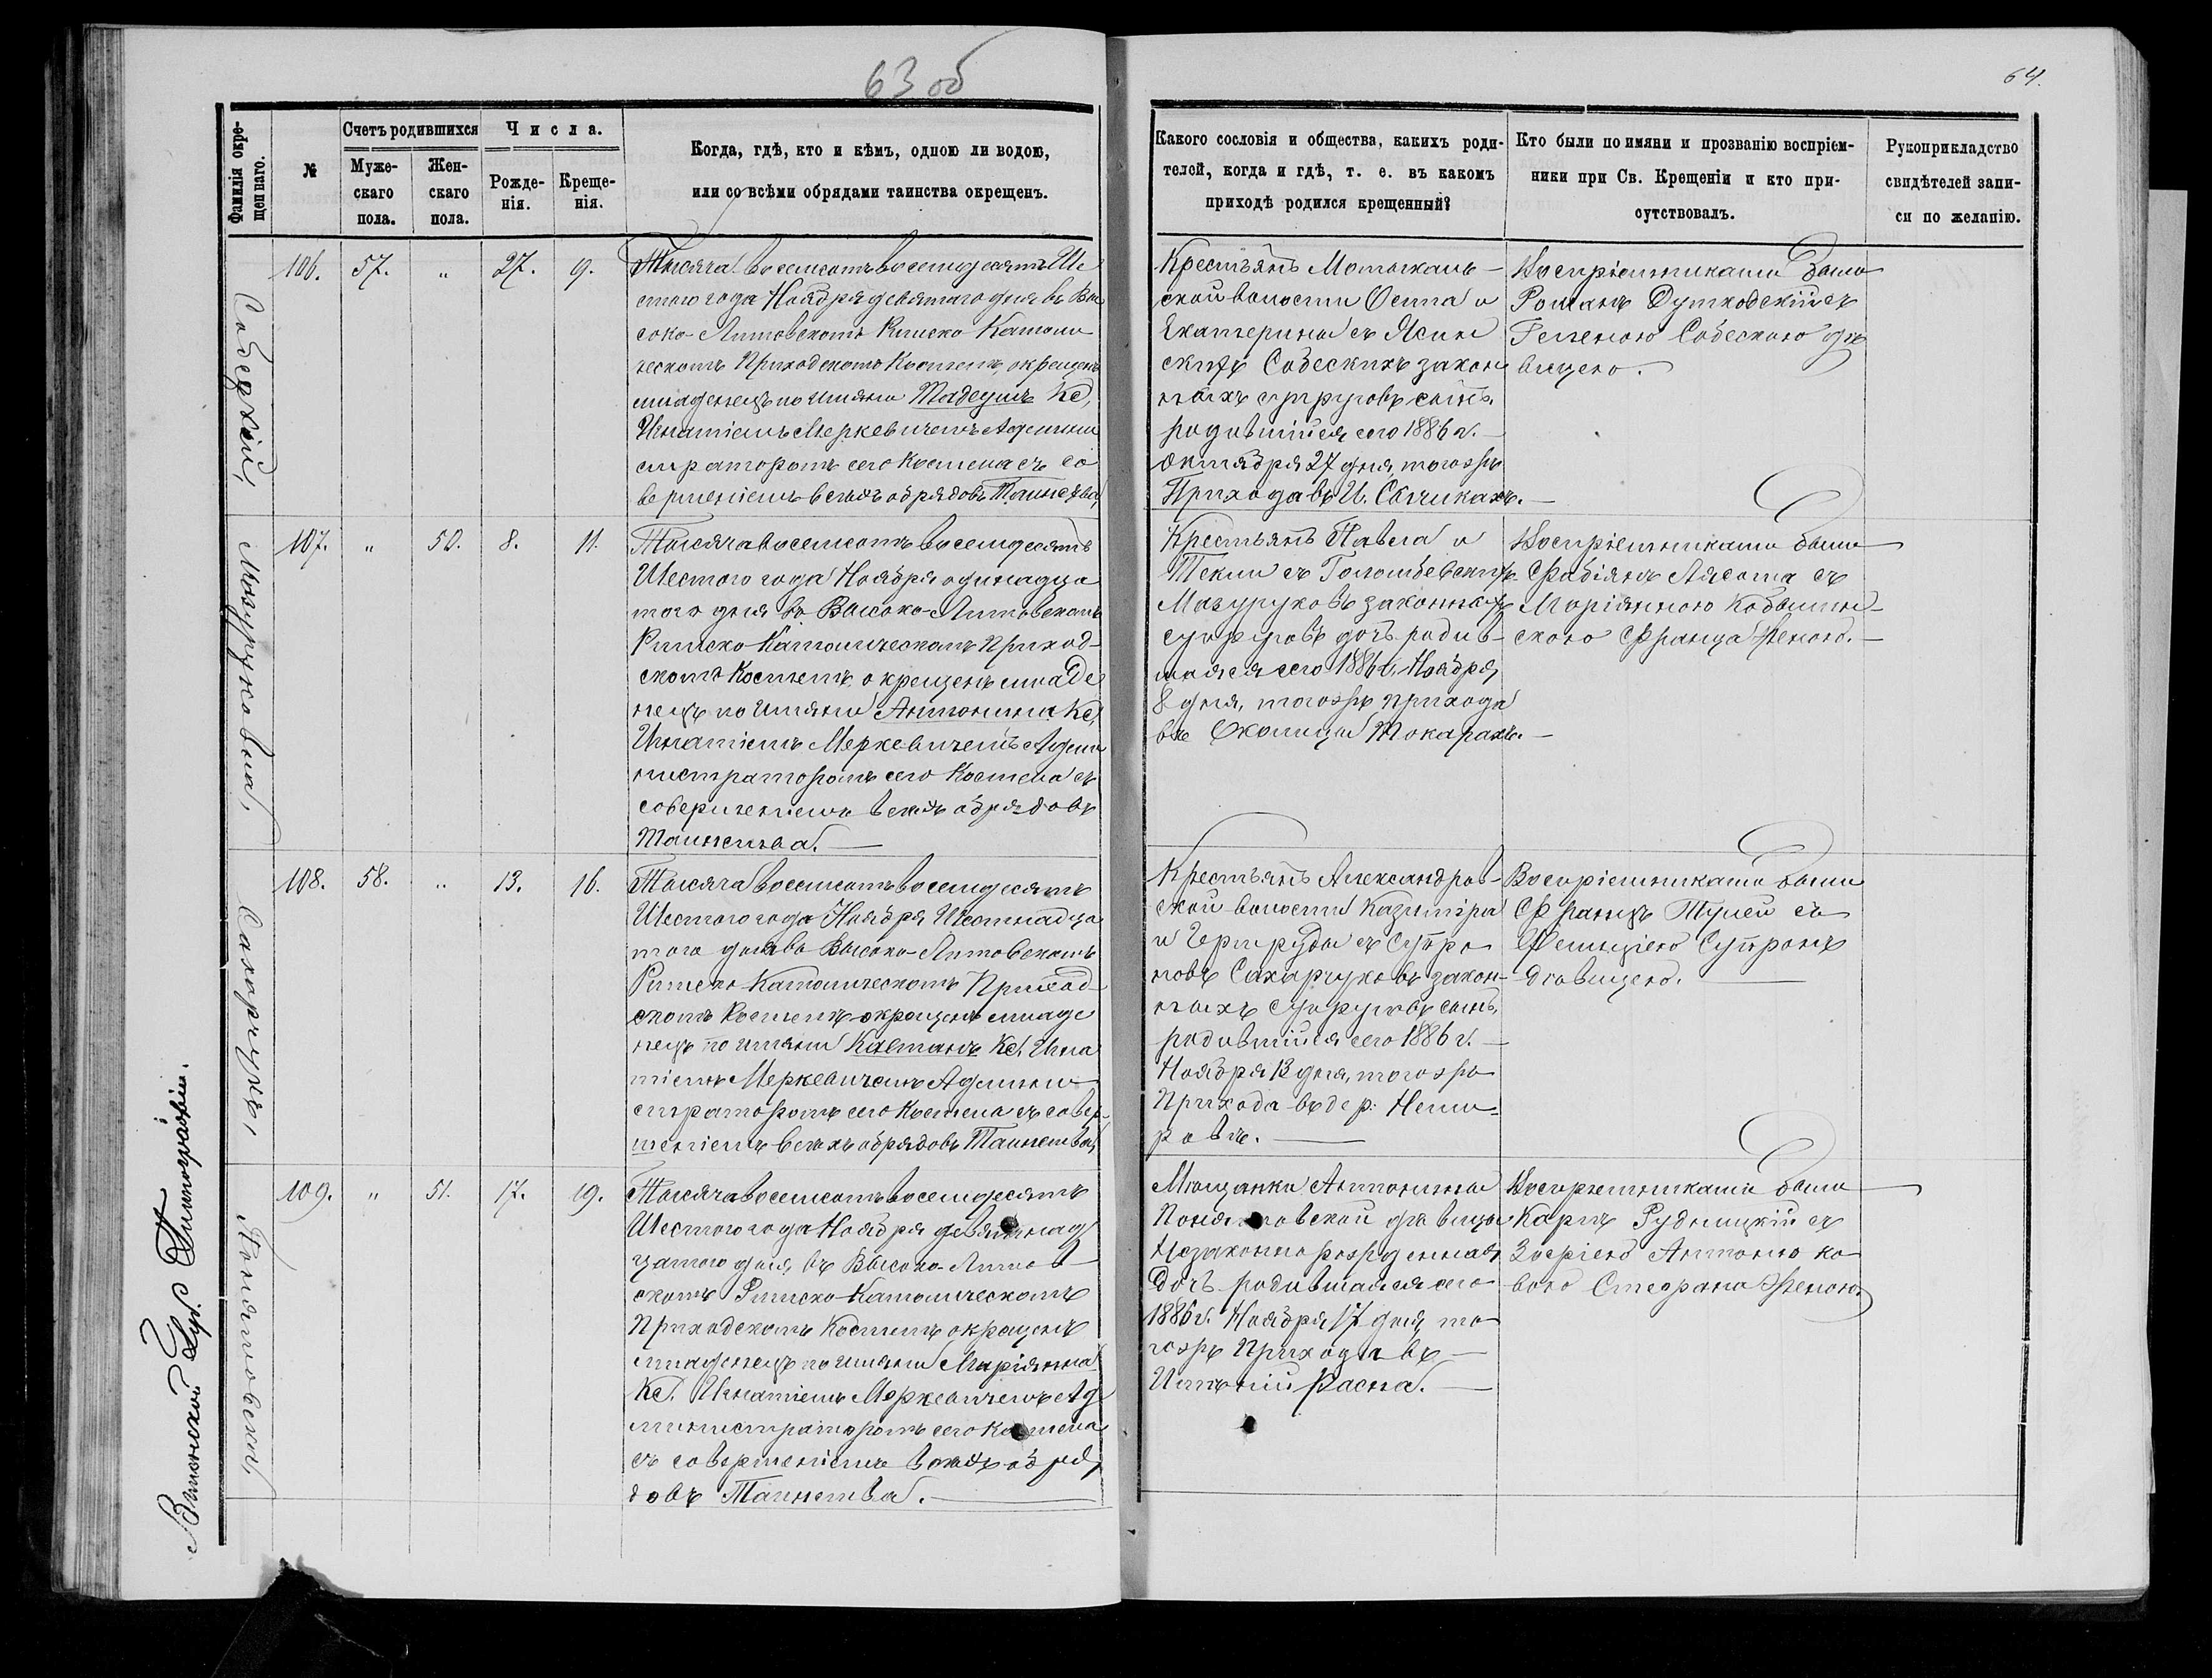 63 об
64.
Фамилія окре-
щеннаго.
№
Счетъ родившихся
Муже-
скаго
пола.
Жен-
скаго
пола.
Числа.
Рожде-
нія.
Креще-
нія.
Когда, гдѣ, кто и кѣмъ, одною ли водою,
или со всѣми обрядами таинства окрещенъ.
Какого сословія и общества, какихъ роди-
телей, когда и гдѣ, т. е. въ какомъ
приходѣ родился крещенный?
Кто были по имяни и прозванію воспріем-
ники при Св. Крещеніи и кто при-
сутствовалъ.
Рукоприкладство
свидѣтелей запи-
си по желанію.
Собескій,
106. 57. „ 27. 9.
Тысяча восемсотъ восемдесятъ Ше
стого года Ноября девятаго дня въ Вы
соко-Литовскомъ Римско Католи
ческомъ Приходскомъ Костелѣ, окрещенъ
младенецъ по имяни Тадеушъ Кс,
Игнатіемъ Меркевичемъ Админи
страторомъ сего Костела съ со
вершеніемъ всѣхъ обрядовъ Таинства,
Крестьянъ Мотыкаль-
ской волости Осипа и
Екатерины съ Ясин
скихъ Собескихъ закон
ныхъ супруговъ сынъ,
родившійся сего 1886 г.
Октября 27 дня, тогожъ
Прихода въ И. Сычикахъ.
Воспріемниками были
Романъ Дутковскій съ
Геленою Собескою дѣ
вицею.
Мазуруковна,
107. „ 50. 8. 11.
Тысяча восемсотъ восемдесятъ
Шестого года Ноября одинадца
того дня въ Высоко-Литовскомъ
Римско-Католическомъ Приход-
скомъ Костелѣ, окрещенъ младе
нецъ по имяни Антонина Кс,
Игнатіемъ Меркевичемъ Адми
нистраторомъ сего Костела съ
совершеніемъ всѣхъ обрядовъ
Таинства.
Крестьянъ Павла и
Текли съ Голомбевскихъ
Мазуруковъ законныхъ
супруговъ дочь родив-
шаяся сего 1886 г. Ноября
8 дня, тогожъ прихода
въ Околицы Токарахъ.
Воспріемниками были
Фабіянъ Лясота съ
Маріянною Кобылин-
скою Франца женою.
Сахарчукъ,
108. 58. „ 13. 16.
Тысяча восемсотъ восемдесятъ
Шестого года Ноября Шестнадца
того дня въ Высоко-Литовскомъ
Римско-Католическомъ Приход
скомъ Костелѣ окрещенъ младе
нецъ по имяни Каетанъ Кс. Игна
тіемъ Меркевичемъ Админи
страторомъ сего Костела съ совер-
шеніемъ всѣхъ обрядовъ Таинства,
Крестьянъ Александров-
ской волости Казиміра
и Гертруды съ Супро
новъ Сахарчуковъ закон-
ныхъ супруговъ сынъ,
родившійся сего 1886 г.
Ноября 13 дня, тогожъ
Прихода въ дер. Неми-
ровѣ.
Воспріемниками были
Францъ Тулей съ
Фелиціею Супронъ
дѣвицею.
Понятовска,
109. „ 51. 17. 19.
Тысяча восемсотъ восемдесятъ
Шестого года Ноября девятнад
цатого дня, въ Высоко-Литов
скомъ Римско-Католическомъ
Приходскомъ Костелѣ окрещенъ
младенецъ по имяни Маріянна
Кс. Игнатіемъ Меркевичемъ Ад
министраторомъ сего Костела
съ совершеніемъ всѣхъ обря
довъ Таинства.
Мѣщанки Антонины
Понятовской дѣвицы
Незаконнорожденная
дочь родившаяся сего
1886 г. Ноября 17 дня то
гожъ Прихода въ
Имѣніи Расна.
Воспріемниками были
Карлъ Рудницкій съ
Зофіею Антоню ко
вою Стефана женою
Виленской Губ. Типографіи.